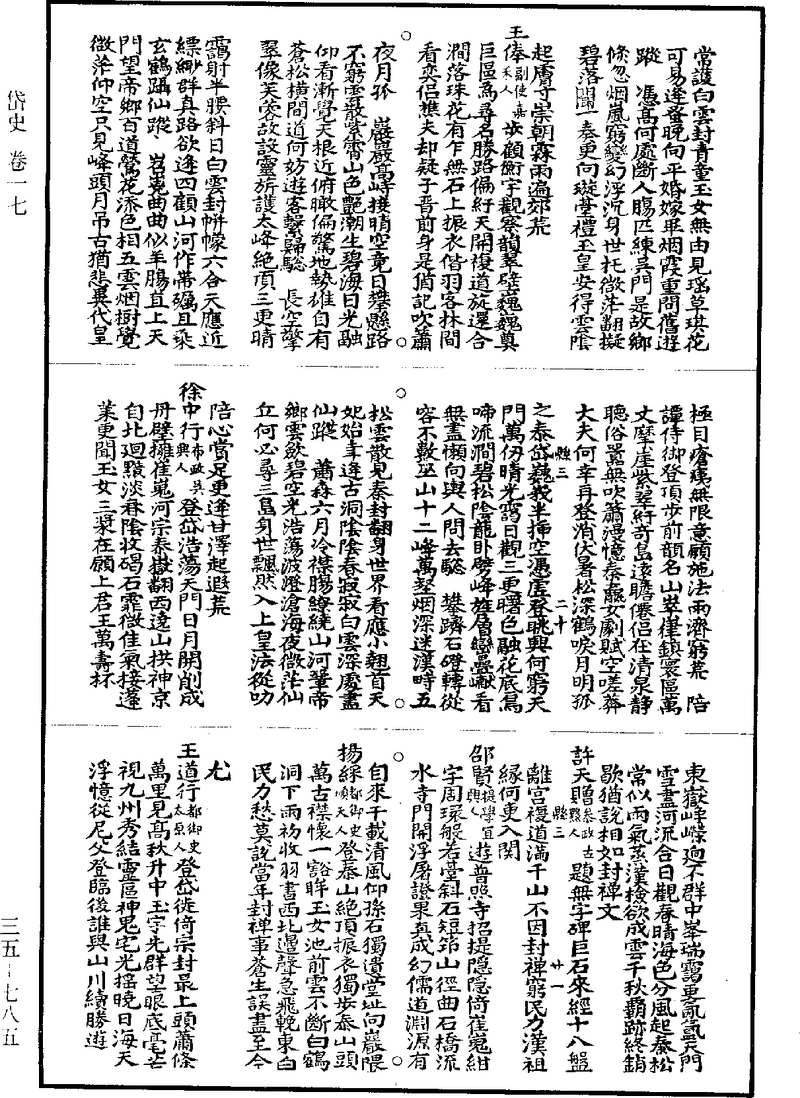 岱史 卷一七
常護白雲封青童玉女無由見瑤草琪花
可易逢蚤晚向平婚嫁畢烟霞重問舊遊
蹤 憑高何處斷人腸匹練吳門是故鄉
倏忽烟嵐窮變幻浮沉身世托微茫翻擬
碧落聞一奏更向璇臺禮玉皇安得雲陰
起膚寸崇朝霖雨遍郊荒
王俸副使嘉禾人 步顧衡宇觀察韻翠壁巍巍奠
巨區為尋名勝路偏紆天開複道旋還合
澗落珠花有乍無石上振衣偕羽客林間
看奕侶樵夫却疑子晋前身是猶記吹簫
夜月孤 巖巖高峙接晴空竟日攀懸路
不窮雲散紫霄山色艷潮生碧海日光融
仰看漸覺天根近俯瞰偏驚地勢雄自有
蒼松橫間道何妨遊客繫歸驄 長空擎
翠像芙蓉故設靈旂護太峰絶頂三更晴
靄射半腰斜日白雲封帡幪六合天應近
縹緲群真路欲逢四顧山河作帶礪且乘
玄鶴躡仙蹤 岧嶤曲曲似羊腸直上天
門望帝鄉百道鶯花添色相五雲烟樹覺
微茫仰空只見峰頭月吊古猶悲異代皇
極目瘡痍無限意願施法雨濟窮荒 陪
譚侍御登頂步前韻名山崒嵂鎮寰區萬
丈摩崖紫翠紆奇島遠瞻僊侶在清泉靜
聽俗囂無吹簫漫憶秦嬴女劚賦空嗟莽
大夫何幸再登消伏暑松深鶴唳月明孤
縣三 二十
之泰岱巍峩半揷空憑虛登眺興何窮天
門萬仞晴光靄日觀三更曙色融花底鳥
啼流澗碧松陰龍卧劈峰雄層巒疊巘看
無盡懶向與人問去驄 攀躋石磴轉從
容不數巫山十二峰萬壑烟深迷漢畤五
松雲散見秦封翻身世界看應小翹首天
妃始幸逢古洞陰陰春寂寂白雲深處盡
仙蹤 蕭森六月冷襟腸繚繞山河輦帝
鄉雲歛碧空光浩蕩波澄滄海夜微茫仙
丘何必尋三島身世飄然入上皇法從叨
陪心賞足更逢甘澤起遐荒
徐中行布政吳興人 登岱浩蕩天門日月開削成
丹壁擁崔嵬河宗泰嶽翻西遶山拱神京
自北迴㸃淡春陰收碣石霏微佳氣接蓬
萊更聞玉女三漿在願上君王萬壽杯
東嶽崢嶸迥不群中峯瑞靄更氤氳天門
雪盡河流合日觀春晴海色分風起秦松
常似雨氣蒸漢檢欲成雲千秋覇跡終銷
歇猶説相如封禪文
許天贈參政古黟人 題無字碑巨石來經十八盤
縣三 廿一
離宮複道滿千山不因封禪窮民力漢祖
緣何更入關
邵賢提學宜興人 遊普照寺招提隱隱倚崔嵬紺
宇周環般若臺斜石短筇山徑曲石橋流
水寺門開浮屠證果真成幻儒道淵源有
自來千載清風仰孫石獨遺堂址向巖隈
楊綵都御史順天人 登泰山絶頂振衣獨步泰山頭
萬古襟懷一豁眸玉女池前雲不斷白鶴
洞下雨初收羽書西北邊聲急飛輓東南
民力愁莫説當年封禪事蒼生誤盡至今
尤
王道行都御史太原人 登岱徙倚宗封最上頭蕭條
萬里見高秋升中玉字先群望眼底毫芒
視九州秀結靈區神鬼宅光搖曉日海天
浮憶從尼父登臨後誰與山川續勝遊
三五—七八五